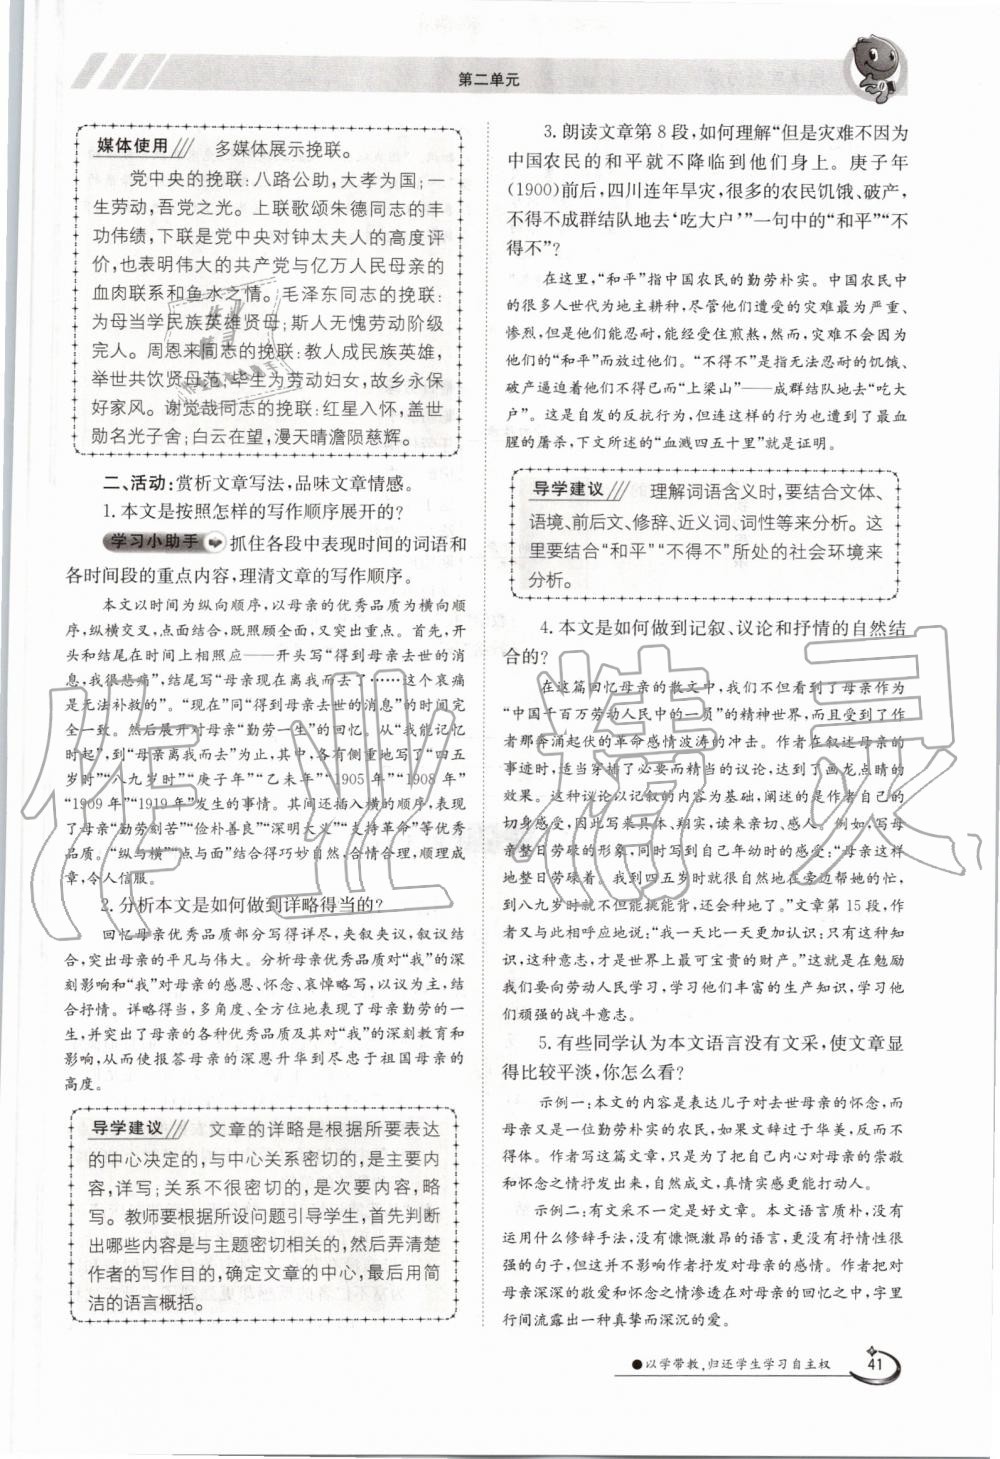 第二单元
媒体使用 多媒体展示挽联。
党中央的挽联:八路公助,大孝为国;一
生劳动,吾党之光。上联歌颂朱德同志的丰
功伟绩,下联是党中央对钟太夫人的高度评
价,也表明伟大的共产党与亿万人民母亲的
血肉联系和鱼水之情。毛泽东同志的挽联:
为母当学民族英雄贤母;斯人无愧劳动阶级
完人。周恩来同志的挽联:教人成民族英雄,
举世共饮贤母范;毕生为劳动妇女,故乡永保
好家风。谢觉哉同志的挽联:红星入怀,盖世
勋名光子舍;白云在望,漫天晴澹陨慈辉。
二、活动:赏析文章写法,品味文章情感。
1.本文是按照怎样的写作顺序展开的?
学习小助手 抓住各段中表现时间的词语和
各时间段的重点内容,理清文章的写作顺序。
本文以时间为纵向顺序,以母亲的优秀品质为横向顺
序,纵横交叉,点面结合,既照顾全面,又突出重点。首先,开
头和结尾在时间上相照应——开头写“得到母亲去世的消
息,我很悲痛”,结尾写“母亲现在离我而去了……这个哀痛
是无法补救的”。“现在”同“得到母亲去世的消息”的时间完
全一致。然后展开对母亲“勤劳一生”的回忆。从“我能记忆
时起”,到“母亲离我而去”为止,其中,各有侧重地写了“四五
岁时”“八九岁时”“庚子年”“乙未年”“1905年”“1908年”
“1909年”“1919年”发生的事情。其间还插入横的顺序,表现
了母亲“勤劳刻苦”“俭朴善良”“深明大义”“支持革命”等优秀
品质。“纵与横”“点与面”结合得巧妙自然,合情合理,顺理成
章,令人信服。
2.分析本文是如何做到详略得当的?
回忆母亲优秀品质部分写得详尽,夹叙夹议,叙议结
合,突出母亲的平凡与伟大。分析母亲优秀品质对“我”的深
刻影响和“我”对母亲的感恩、怀念、哀悼略写,以议为主,结
合抒情。详略得当,多角度、全方位地表现了母亲勤劳的一
生,并突出了母亲的各种优秀品质及其对“我”的深刻教育和
影响,从而使报答母亲的深恩升华到尽忠于祖国母亲的
高度。
导学建议 文章的详略是根据所要表达
的中心决定的,与中心关系密切的,是主要内
容,详写;关系不很密切的,是次要内容,略
写。教师要根据所设问题引导学生,首先判断
出哪些内容是与主题密切相关的,然后弄清楚
作者的写作目的,确定文章的中心,最后用简
洁的语言概括。
3.朗读文章第8段,如何理解“但是灾难不因为
中国农民的和平就不降临到他们身上。庚子年
(1900)前后,四川连年旱灾,很多的农民饥饿、破产,
不得不成群结队地去‘吃大户’”一句中的“和平”“不
得不”?
在这里,“和平”指中国农民的勤劳朴实。中国农民中
的很多人世代为地主耕种,尽管他们遭受的灾难最为严重、
惨烈,但是他们能忍耐,能经受住煎熬,然而,灾难不会因为
他们的“和平”而放过他们。“不得不”是指无法忍耐的饥饿、
破产逼迫着他们不得已而“上梁山”——成群结队地去“吃大
户”。这是自发的反抗行为,但连这样的行为也遭到了最血
腥的屠杀,下文所述的“血溅四五十里”就是证明。
导学建议 理解词语含义时,要结合文体、
语境、前后文、修辞、近义词、词性等来分析。这
里要结合“和平”“不得不”所处的社会环境来
分析。
4.本文是如何做到记叙、议论和抒情的自然结
合的?
在这篇回忆母亲的散文中,我们不但感受到了母亲作为
“中国千百万劳动人民中的一员”的精神世界,而且受到了作
者那奔涌起伏的革命感情波涛的冲击。作者在叙述母亲的
事迹时,适当穿插了必要而精当的议论,达到了画龙点睛的
效果。这种议论以记叙的内容为基础,阐述的是作者自己的
切身感受,因此写来具体、翔实,读来亲切、感人。例如,写母
亲整日劳碌的形象,同时写到自己年幼时的感受:“母亲这样
地整日劳碌着。我到四五岁时就很自然地在旁边帮她的忙,
到八九岁时就不但能挑能背,还会种地了。”文章第15段,作
者又与此相呼应地说:“我一天比一天更加认识:只有这种知
识,这种意志,才是世界上最可宝贵的财产。”这是在勉励
我们要向劳动人民学习,学习他们丰富的生产知识,学习他
们顽强的战斗意志。
5.有些同学认为本文语言没有文采,使文章显
得比较平淡,你怎么看?
示例一:本文的内容是表达儿子对去世母亲的怀念,而
母亲又是一位勤劳朴实的农民,如果文辞过于华美,反而不
得体。作者写这篇文章,只是为了把自己内心对母亲的崇敬
和怀念之情抒发出来,自然成文,真情实感更能打动人。
示例二:有文采不一定是好文章。本文语言质朴,没有
运用什么修辞手法,没有慷慨激昂的语言,也没有强烈的抒情
色彩,但不影响作者抒发对母亲的感情。作者把对
母亲深深的敬爱和怀念之情渗透在对母亲的回忆之中,字里
行间流露出一种真挚而深沉的爱。
●以学带教,归还学生学习自主权
41
作业精灵